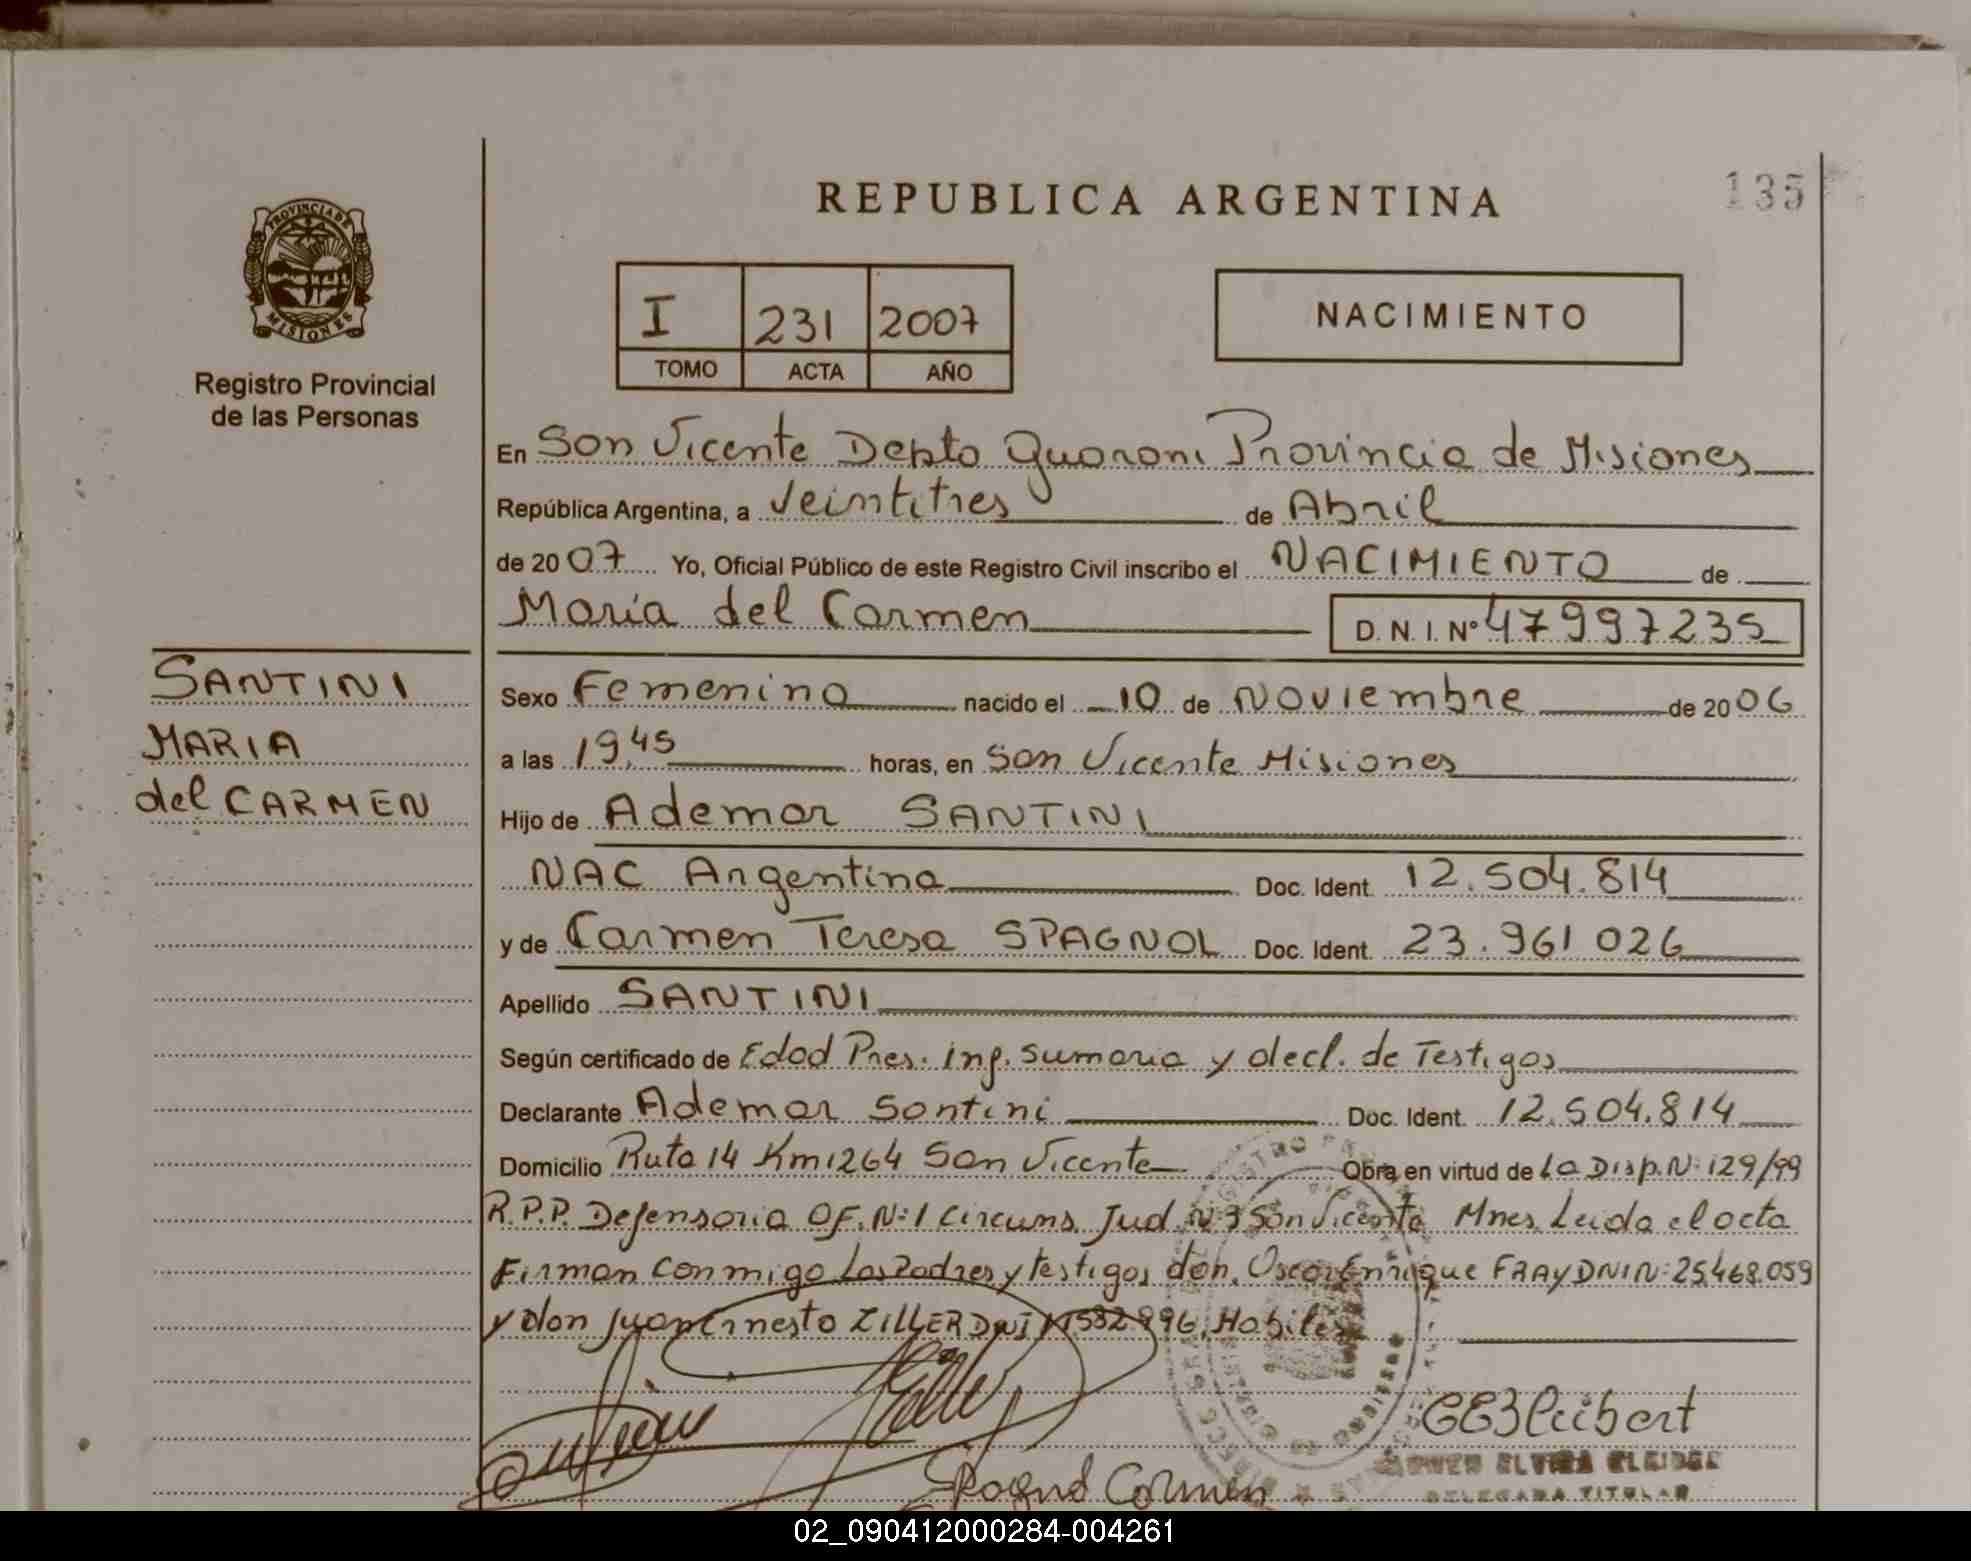 REPUBLICA ARGENTINA
135
PROVINCIA DE
MISIONES
Registro Provincial
de las Personas
I 231 2007
TOMO ACTA AÑO
NACIMIENTO
En San Vicente Depto Guarani Provincia de Misiones
República Argentina, a Veintitres de Abril
de 2007 Yo, Oficial Público de este Registro Civil inscribo el NACIMIENTO de
María del Carmen D.N.I. Nº 47997235
SANTINI
MARIA
del CARMEN
Sexo Femenino nacido el 10 de Noviembre de 2006
a las 19,45 horas, en San Vicente Misiones
Hijo de Ademar SANTINI
NAC Argentina Doc. Ident. 12.504.814
y de Carmen Teresa SPAGNOL Doc. Ident. 23.961 026
Apellido SANTINI
Según certificado de Edad Pres. inf. sumaria y decl. de Testigos
Declarante Ademar Santini Doc. Ident. 12.504.814
Domicilio Ruta 14 Km 1264 San Vicente Obra en virtud de La Disp. N: 129/99
R.P.P. Defensoria OF. N:1 Circuns. Jud. N 3 San Vicente Mnes. Leida el acta
Firman conmigo Los Padres y testigos don. Oscar Enrique FRAY DNI N: 25.468.059
y don Juan Ernesto ZILLER DNI Habiles
Spagnol Carmen
DELEGADA TITULAR
02_090412000284-004261